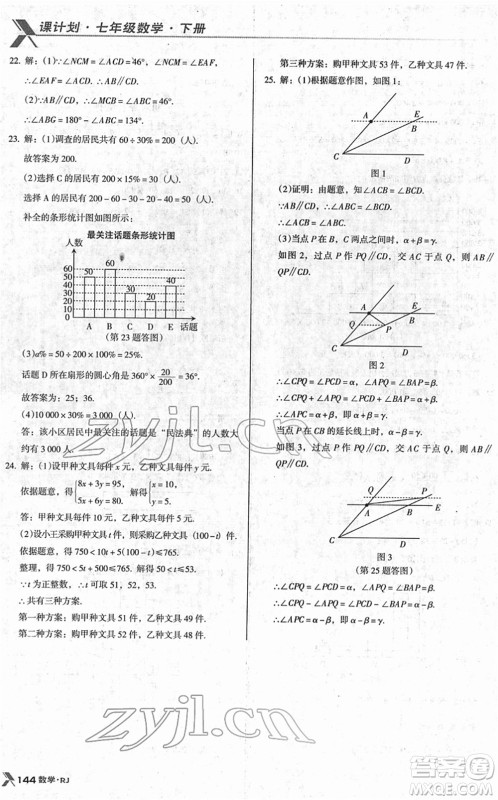 课计划·七年级数学·下册
22. 解：(1)∵∠NCM = ∠ACD = 46°，∠NCM = ∠EAF，
∴∠EAF = ∠ACD，∴AB∥CD.
(2)∵AB∥CD，∴∠MCB = ∠ABC = 46°，
∴∠ABG = 180° − ∠ABC = 134°.
23. 解：(1)调查的居民共有 60÷30% = 200（人）.
故答案为 200.
(2)选择 C 的居民有 200×15% = 30（人）.
选择 A 的居民有 200 − 60 − 30 − 20 − 40 = 50（人）.
补全的条形统计图如图所示：
最关注话题条形统计图
人数
60
50
40
30
20
10
0
50
60
30
20
40
A B C D E 话题
（第 23 题答图）
(3)a% = 50÷200×100% = 25%.
话题 D 所在扇形的圆心角是 360° × 20/200 = 36°.
故答案为：25；36.
(4)10 000×30% = 3 000（人）.
答：该小区居民中最关注的话题是“民法典”的人数大
约有 3 000 人.
24. 解：(1)设甲种文具每件 x 元，乙种文具每件 y 元.
依据题意，得 {8x + 3y = 95， 5x + 6y = 80. 解得 {x = 10， y = 5.
答：甲种文具每件 10 元，乙种文具每件 5 元.
(2)设小王采购甲种文具 t 件，则乙种文具(100 − t)件.
依据题意，得 750＜10t + 5(100 − t)≤765.
整理，得 750＜5t + 500≤765. 解得 50＜t≤53.
∵t 为正整数，∴t 可以取 51，52，53.
∴共有三种方案.
第一种方案：购甲种文具 51 件，乙种文具 49 件.
第二种方案：购甲种文具 52 件，乙种文具 48 件.
第三种方案：购甲种文具 53 件，乙种文具 47 件.
25. 解：(1)根据题意作图，如图 1：
A
E
B
C
D
图 1
(2)证明：由题意，可知∠ACB = ∠BCD.
∵∠ACB = ∠ABC，∴∠ABC = ∠BCD.
∴AB∥CD.
(3)当点 P 在 B，C 两点之间时，α + β = γ.
如图 2，过点 P 作 PQ∥CD，交 AC 于点 Q，则 AB∥
QP∥CD.
A
E
B
Q
P
C
D
图 2
∴∠CPQ = ∠PCD = β，∠APQ = ∠BAP = α.
∴∠APC = ∠APQ + ∠CPQ = α + β = γ.
当点 P 在 CB 的延长线上时，α − β = γ.
如图 3，过点 P 作 PQ∥CD，交 AC 于点 Q，则 AB∥
QP∥CD.
Q
P
E
A
B
C
D
图 3
（第 25 题答图）
∴∠CPQ = ∠PCD = β，∠APQ = ∠BAP = α.
∴∠APC = ∠APQ − ∠CPQ = α − β.
∴∠APC = α − β，即 α − β = γ.
zyjl.cn
zyjl.cn
144 数学·RJ
作业精灵